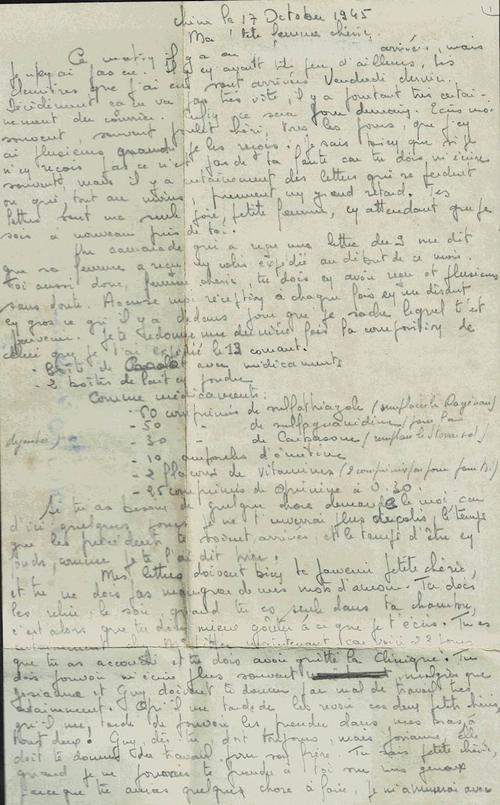 1
Chine le 17 October 1945
Ma p'tite femme chérie.
Ce matin, il y a eu arrivée, mais
je n'ey ai pas eu. Il ey ayait très peu d'ailleurs, les
dernières que j'ai eu sont arrivées Vendredi dernier.
Décidément ça ne va pas très vite, il y a pourtant très certai-
nement du courrier. ce sera pour demain. Ecris moi
souvent souvent poulet chéri, tous les jours, que j'ey
ai plusieurs quand je les reçois. Je sais bien que si je
n'ey reçois pas ce n'est pas de ta faute car tu dois m'écrire
souvent, mais il y a certainement des lettres qui se perdent
ou qui, tout au moins, prennent un grand retard. Tes
lettres sont ma seule joie, petite femme, ey attendant que je
sois à nouveau près de toi.
Un camarade qui a reçu une lettre du 2 me dit
que sa femme a reçu un colis expédié au début de ce mois.
Toi aussi donc, femme chérie, tu dois ey avoir reçu et plusieurs
sans doute. Accuse moi réception à chaque fois ey me disant
ey gros ce qu'il y a dedans pour que je sache lequel t'est
parvenu. Je te redonne une dernière fois la composition de
celui que je t'ai expédié le 13 courant.
- boîte de avec médicaments
- 2 boîtes de lait en poudre
Comme médicaments:
- 50 comprimés de sulfathiazole (remplace le Dagénan)
- 50 - de sulfaguanidine (pour la
dysenterie)
- 30 - de Carbasone (remplace le Stovarsol)
- 10 ampoules d'émétine
- 2 flacons de Vitamines (2 comprimés par jour)
- 25 comprimés de Quinine à 0.30.
Si tu as besoin de quelque chose demande le moi, car
d'ici quelques jours je ne t'enverrai plus de colis, le temps
que les précédents te soient arrivés et le temps d'être ey
comme je te l'ai dit hier.
Mes lettres doivent bien te parvenir petite chérie,
et tu ne dois pas manquer de mes mots d'amour. Tu dois
les relire le soir, quand tu es seule dans ta chambre,
c'est alors que tu dois mieux goûter à ce que je t'écris. Tu es
maintenant car voici 22 jours
que tu as accouché et tu dois avoir quitté la Clinique. Tu
dois pouvoir m'écrire plus souvent malgré que
Josianne et Guy doivent te donner pas mal de travail très
certainement. Qu'il me tarde de les revoir ces deux petits chéris,
qu'il me tarde de pouvoir les prendre dans mes bras, à
tous deux! Guy, dis tu, dort toujours mais Josianne, elle
doit te donner du travail pour son frère. Tu sais petite chérie,
quand je ne pourrai te prendre à toi sur mes genoux
parce que tu auras quelque chose à faire, je m'amuserai avec